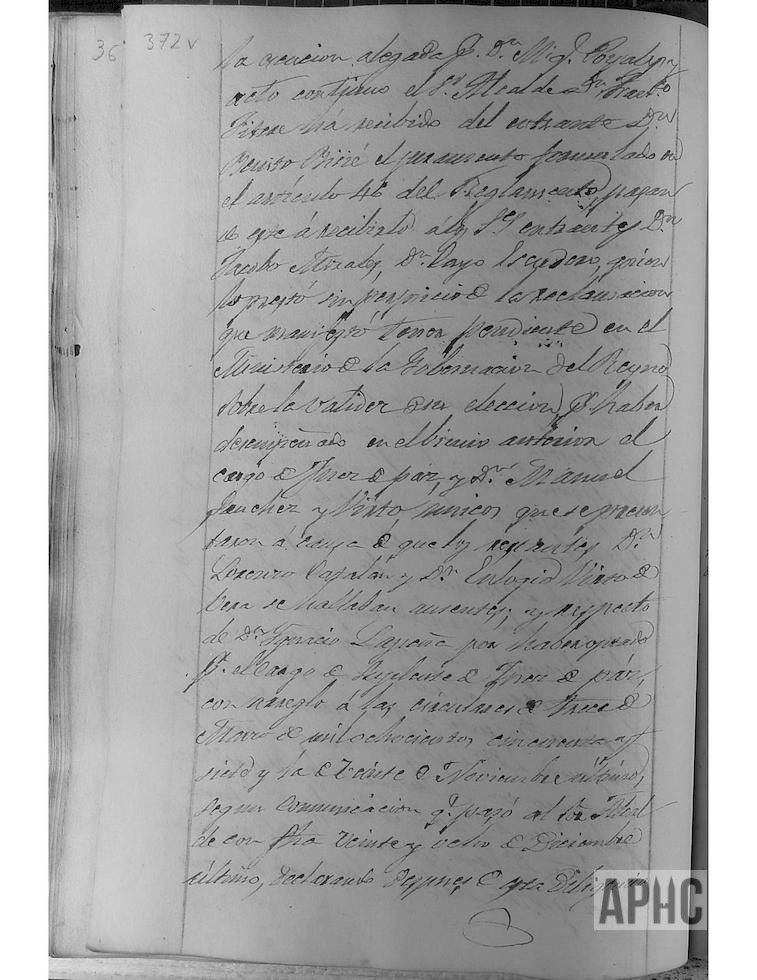 36 372 v
la alegada p.r D.n Mig.l
acto continuo el S.r Alcalde D.n
ha recibido del entrante D.n
Benito el juramento formulado en
el artículo 46 del Reglamento,
á recibirlo á los S.S entrantes D.n
Jacobo Morales, D.n Payo Escudero, quien
lo prestó sin perjuicio de la reclamacion
que manifestó tener pendiente en el
Ministerio de la Gobernacion del Reyno
sobre la validez de su eleccion, p.r haber
desempeñado en el bienio anterior el
cargo de Juez de paz, y D.n Manuel
Sanchez y Vinto unicos que se presen
taron á causa de que los restantes D.n
Lorenzo Catalán y D.n Eulogio de
Vera se hallaban ausentes, y respecto
de D.n Ignacio Lapeña por haber optado
p.r el cargo de Suplente de Juez de paz,
con arreglo a las circulares de trece de
Marzo de mil ochocientos cincuenta y
siete y la de Veinte de Noviembre último,
segun comunicacion q.e pasó al Sor Alcal
de con fha veinte y ocho de Diciembre
último, declarando despues de esta Diligencia
APHC